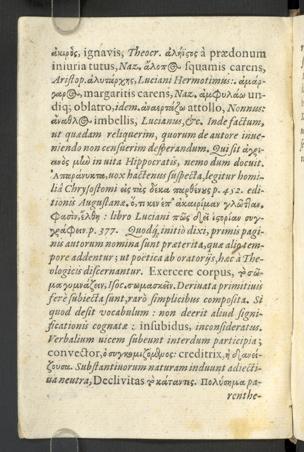 ἀκιρὸς, ignavis, Theocr. ἀλήϊστος à prædonum
iniuria tutus, Naz. squamis carens,
Aristop. ἀλυτάρχης, Luciani Hermotimus:
margaritis carens, Naz. ἀμφυλάω un-
diq; oblatro, idem. ἀναερτάζω attollo, Nonnus:
imbellis, Lucianus, &c. Inde factum,
ut quædam reliquerim, quorum de autore inue-
niendo non censuerim desperandum. Qui sit
in vita Hippocratis, nemo dum docuit.
Ἀπεράνυκτα, vox hactenus suspecta, legitur homi-
liâ Chrysostomi εἰς τὰς δέκα παρθένους p. 452. edi-
tionis Augustanæ. ὅ, τι κεν ἐπ' ἀκαιρίμαν γλῶσσαν,
φασὶν, ἔλθῃ : libro Luciani πῶς δεῖ ἱστορίαν συγ-
γράφειν p. 377. Quodq́; initio dixi, primis pagi-
nis autorum nomina sunt præterita, quæ aliq; tem-
pore addentur; ut poëtica ab oratorijs, hac à The-
ologicis discernantur. Exercere corpus, τὸ σῶ-
μα γυμνάζειν, Isoc. σωμασκεῖν. Deriuata primitiuis
ferè subiecta sunt, rarò simplicibus composita. Si
quod desit vocabulum : non deerit aliud signi-
ficationis cognatæ : insubidus, inconsideratus.
Verbalium vicem subeunt interdum participia;
convector, ὁ συγκομιζόμενος: creditrix, ἡ δανεί-
ζουσα. Substantiuorum naturam induunt adiecti-
ua neutra, Declivitas τὸ κάταντες. Πολύσημα pa-
renthe-